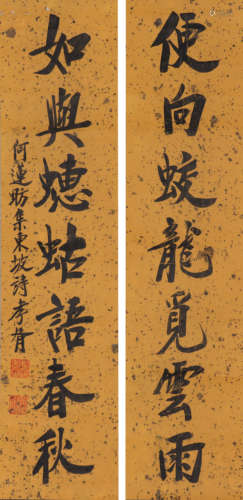 便向蛟龍覓雲雨
如與蟪蛄語春秋
何蓮舫集東坡詩李脊